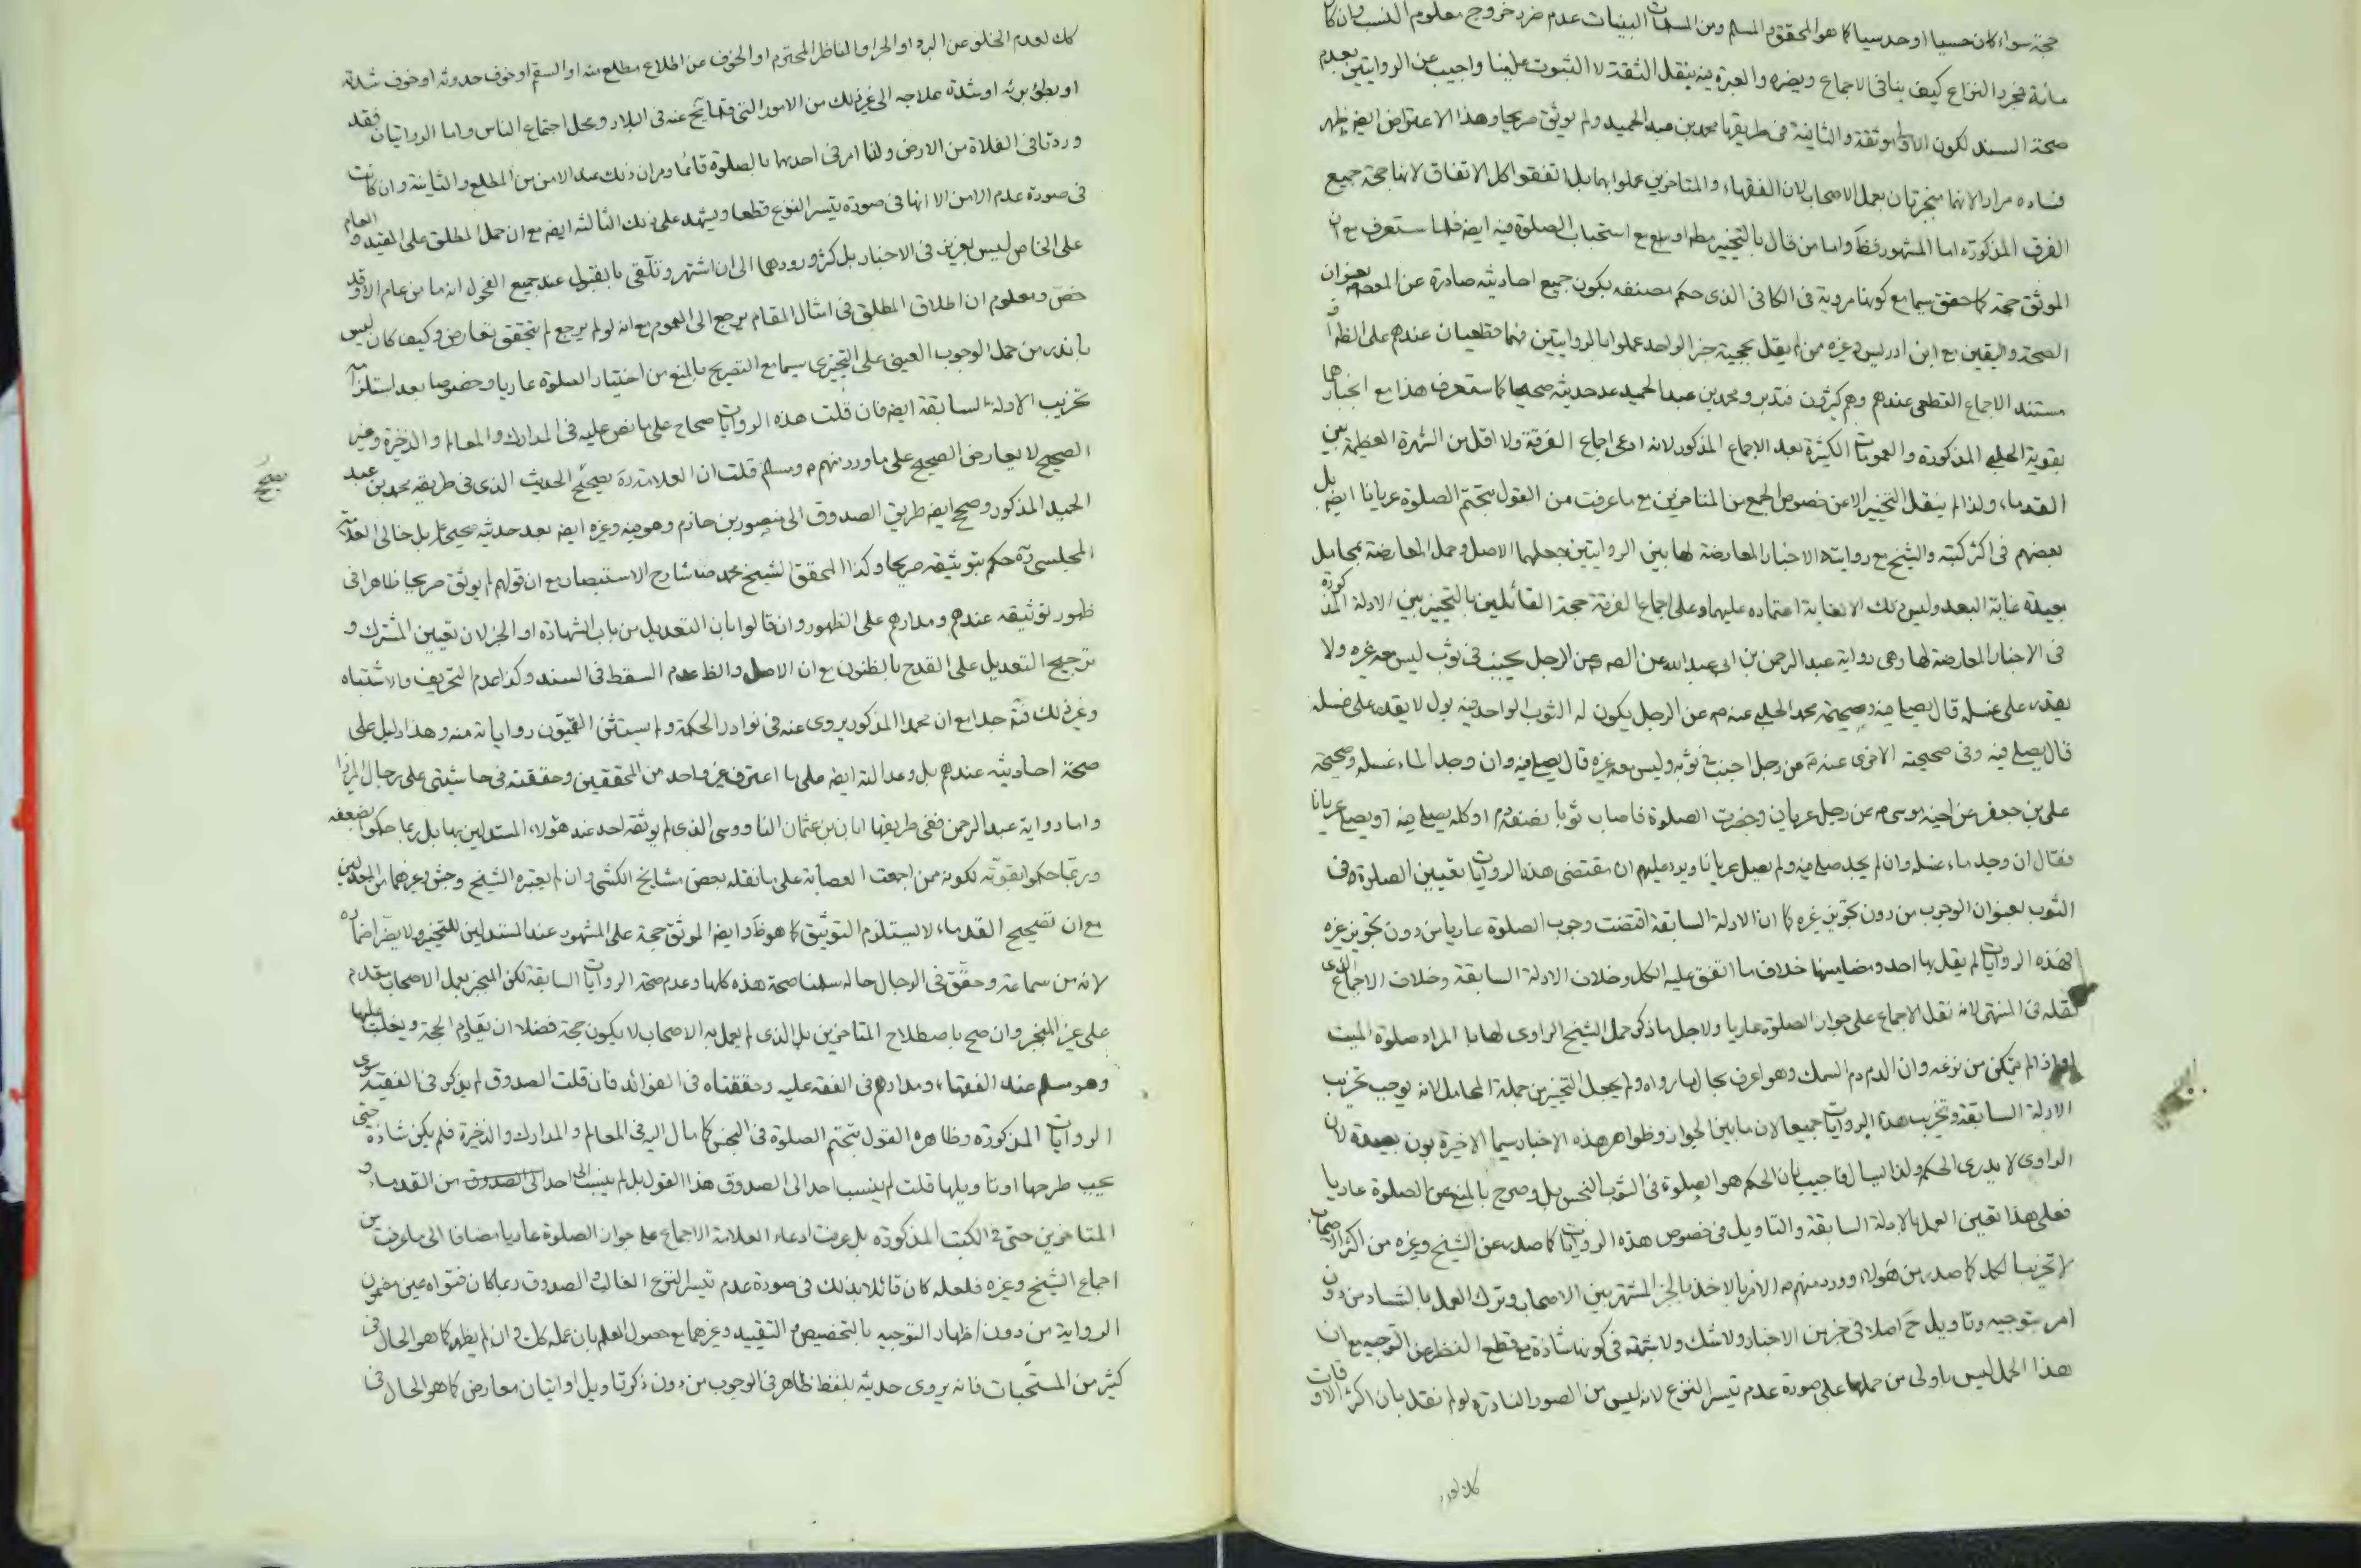 حجة سواء كان حسيا او حدسيا كما هو المحقق والمسلم ومن المسلمات البينات عدم ضرر خروج معلوم النسب وان كان
مائة فمجرد النزاع كيف ينافى الاجماع ويضره والعبرة فيه بنقل الثقة لا الثبوت علينا واجيب عن الروايتين بعدم
صحة السند لكون الاولى موثقة والثانية فى طريقها محمد بن عبد الحميد ولم يوثق صريحا وهذا الاعتراض ايضا يظهر
فساده مرارا لانهما منجبرتان بعمل الاصحاب لان الفقهاء والمتاخرين عملوا بهما بل اتفقوا كل الاتفاق لانها حجة جميع
الفرق المذكورة اما المشهور فظ واما من قال بالتخيير مط او مع استحباب الصلوة فيه ايضا فلما ستعرف مع ان
الموثق حجة كما حقق سيما مع كونها مروية فى الكافى الذى حكم مصنفه بكون جميع احاديثه صادرة عن المعصوم بعنوان
الصحة واليقين مع ابن ادريس وغيره ممن لم يقل بحجية خبر الواحد عملوا بالروايتين فهما قطعيان عندهم على الظ او
مستند الاجماع القطعى عندهم وهم كثيرون فتدبر ومحمد بن عبد الحميد عد حديثه صحيحا كما ستعرف هذا مع انجبارها
بقوية الحلبى المذكورة والعمومات الكثيرة بعد الاجماع المذكور لانه ادعى اجماع الفرقة ولا اقل من الشهرة العظيمة بين
القدماء ولذا لم ينقل التخيير الا عن خصوص الجمع من المتاخرين مع ما عرفت من القول بتحتم الصلوة عريانا ايضا بل
بعضهم فى اكثر كتبه والشيخ مع روايته الاخبار المعارضة لها بين الروايتين جعلهما الاصل وحمل المعارضة بمحامل
بعيدة غاية البعد وليس ذلك الا لغاية اعتماده عليهما وعلى اجماع الفرقة حجة القائلين بالتخيير بين الادلة المذكورة
فى الاخبار المعارضة لها وهى رواية عبد الرحمن بن ابى عبد الله عن الصه عن الرجل يجنب فى ثوب ليس معه غيره ولا
يقدر على غسله قال يصلى فيه وصحيحة محمد الحلبى عنه م عن الرجل يكون له الثوب الواحد فيه بول لا يقدر على غسله
قال يصلى فيه وفى صحيحته الاخرى عنه م عن رجل اجنب فى ثوبه وليس معه غيره قال يصلى فيه وان وجد الماء غسله وصحيحة
على بن جعفر عن اخيه موسى م عن رجل عريان وحضرت الصلوة فاصاب ثوبا نصفه دم او كله يصلى فيه او يصلى عريانا
فقال ان وجد ماء غسله وان لم يجد صلى فيه ولم يصل عريانا ويرد عليهم ان مقتضى هذه الروايات تعيين الصلوة فى
الثوب بعنوان الوجوب من دون تجويز غيره كما ان الادلة السابقة اقتضت وجوب الصلوة عاريا من دون تجويز غيره
فهذه الروايات لم يقل بها احد ومضامينها خلاف ما اتفق عليه الكل وخلاف الادلة السابقة وخلاف الاجماع الذى
نقله فى المنتهى لانه نقل الاجماع على جواز الصلوة عاريا ولاجل ما ذكر حمل الشيخ الراوى لها بان المراد صلوة الميت
او اذا لم يتمكن من نزعه وان الدم دم السمك وهو اعرف بحال ما رواه ولم يجعل التخيير من جملة المحامل لانه يوجب تخريب
الادلة السابقة وتخريب هذه الروايات جميعا لان ما بين الجواز وظواهر هذه الاخبار سيما الاخيرة بون بعيدة لان
الراوى لا يدرى الحكم ولذا يسال فاجيب بان الحكم هو الصلوة فى الثوب النجس بل وصرح بالمنع عن الصلوة عاريا
فعلى هذا تعين العمل بالادلة السابقة والتاويل فى خصوص هذه الروايات كما صدر عن الشيخ وغيره من اكثر الاصحاب
لا تخريبا للكل كما صدر من هؤلاء وورد منهم م الامر بالاخذ بالخبر المشتهر بين الاصحاب وترك العمل بالشاذ من دون
امر بتوجيه وتاويل ح اصلا فى خبر من الاخبار ولا شك ولا شبهة فى كونها شاذة مع قطع النظر عن التوجيه مع ان
هذا الحمل ليس باولى من حملها على صورة عدم تيسر النزع لانه ليس من الصور النادرة لو لم نقل بان اكثر الاوقات
كك لعدم
كك لعدم الخلو عن البرد او الحر او الناظر المحترم او الخوف عن اطلاع مطلع منه او السقم او خوف حدوثه او خوف شدته
او بطؤ برئه او شدة علاجه الى غير ذلك من الامور التى قلما يخ عنه فى البلاد ومحل اجتماع الناس واما الروايتان فقد
وردتا فى الفلاة من الارض ولذا امر فى احديهما بالصلوة قائما ومر ان ذلك عند الامن من المطلع والثانية وان كانت
فى صورة عدم الامن الا انها فى صورة تيسر النزع قطعا ويشهد على ذلك الثالثة ايضا مع ان حمل المطلق على المقيد والعام
على الخاص ليس بعزيز فى الاخبار بل كثر ورودهما الى ان اشتهر وتلقى بالقبول عند جميع الفحول انه ما من عام الا وقد
خص ومعلوم ان اطلاق المطلق فى امثال المقام يرجع الى العموم مع انه لو لم يرجع لم يتحقق تعارض وكيف كان ليس
باندر من حمل الوجوب العينى على التخييرى سيما مع التصريح بالمنع من اختيار الصلوة عاريا وخصوصا بعد استلزامه
تخريب الادلة السابقة ايضا فان قلت هذه الروايات صحاح على ما نص عليه فى المدارك والمعالم والذخيرة وغير
الصحيح لا يعارض الصحيح على ما ورد منهم م ومسلم قلت ان العلامة ره يصحح الحديث الذى فى طريقه محمد بن عبد
يصحح
الحميد المذكور وصحح ايضا طريق الصدوق الى منصور بن حازم وهو فيه وغيره ايضا يعد حديثه صحيحا بل خالى العلامة
المجلسى ره حكم بتوثيقه صريحا وكذا المحقق الشيخ محمد شارح الاستبصار مع ان قولهم لم يوثق صريحا ظاهر فى
ظهور توثيقه عندهم ومدارهم على الظهور وان قالوا بان التعديل من باب الشهادة او الخبر لان تعيين المشترك و
ترجيح التعديل على القدح بالظنون مع ان الاصل والظ عدم السقط فى السند وكذا عدم التحريف والاشتباه
وغير ذلك فثم جدا مع ان محمدا المذكور يروى عنه فى نوادر الحكمة ولم يستثن القميون رواياته منه وهذا دليل على
صحة احاديثه عندهم بل وعدالته ايضا على ما اعترف غير واحد من المحققين وحققته فى حاشيتى على رجال الميرزا
واما رواية عبد الرحمن ففى طريقها ابان بن عثمان الناووسى الذى لم يوثقه احد عند هؤلاء المستدلين بها بل ربما حكموا بضعفه
وربما حكموا بقوته لكونه ممن اجمعت العصابة على ما نقله بعض مشايخ الكشى وان لم يعتبره الشيخ وجش وغيرهما من المعدلين
مع ان تصحيح القدماء لا يستلزم التوثيق كما هو ظ وايضا الموثق حجة على المشهور عند المستدلين للتخيير ولا يضر اضماره
لانه من سماعة وحقق فى الرجال حاله سلمنا صحة هذه كلها وعدم صحة الروايات السابقة لكن المنجبر بعمل الاصحاب مقدم
على غير المنجبر وان صح باصطلاح المتاخرين بل الذى لم يعمل به الاصحاب لا يكون حجة فضلا ان يقاوم الحجة ويغلب عليها
وهو مسلم عند الفقهاء ومدارهم فى الفقه عليه وحققناه فى الفوائد فان قلت الصدوق لم يذكر فى الفقيه سوى
الروايات المذكورة وظاهره القول بتحتم الصلوة فى النجس كما مال اليه فى المعالم والمدارك والذخيرة فلم يكن شاذة حتى
يجب طرحها او تاويلها قلت لم ينسب احد الى الصدوق هذا القول بل لم ينسب الى احد الى الصدوق من القدماء و
المتاخرين حتى فى الكتب المذكورة بل عرفت ادعاء العلامة الاجماع على جواز الصلوة عاريا مضافا الى ما عرفت من
اجماع الشيخ وغيره فلعله كان قائلا بذلك فى صورة عدم تيسر النزع الغالب والصدوق ربما كان فتواه عين مضمون
الرواية من دون اظهار التوجيه بالتخصيص و التقييد وغيرهما مع حصول العلم بان عمله كك وان لم يظهر كما هو الحال فى
كثير من المستحبات فانه يروى حديثه بلفظ ظاهر فى الوجوب من دون ذكر تاويل او اتيان معارض كما هو الحال فى